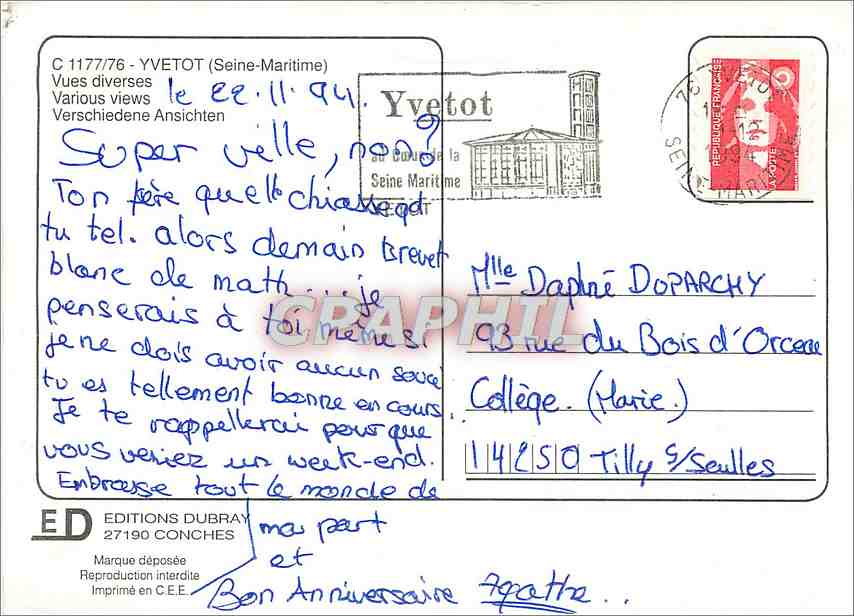 C 1177/76 - YVETOT (Seine-Maritime)
Vues diverses
Various views
Verschiedene Ansichten
le 22.11.94.
Super ville, non?
Ton père quelle chiasse qd
tu tel. alors demain Brevet
blanc de math... je
penserais à toi même si
je ne dois avoir aucun souci
tu es tellement bonne en cours.
Je te rappellerai pour que
vous veniez un week-end.
Embrasse tout le monde de
ma part
et
Bon Anniversaire Agathe...
Yvetot
au Cœur de la
Seine Maritime
YVETOT
76 YVETOT
SEINE-MARITIME
REPUBLIQUE FRANÇAISE
LA POSTE
Mlle Daphné DOPARCHY
93 rue du Bois d'Orceau
Collège. (Marie.)
14250 Tilly s/Seulles
CPAPHIL
ED EDITIONS DUBRAY
27190 CONCHES
Marque déposée
Reproduction interdite
Imprimé en C.E.E.